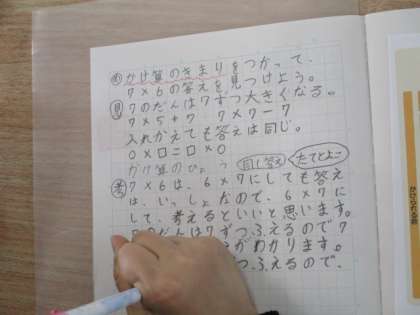 め かけ算のきまりをつかって、
7×6の答えを見つけよう。
見 7のだんは7ずつ大きくなる。
7×5+7 7×7-7
入れかえても答えは同じ。
○×□=□×○
かけ算のひょう 同じ答え たてとよこ
考 7×6は、6×7にしても答え
は、いっしょなので、6×7に
して、考えるといいと思います。
7のだんは7ずつ、ふえるので7
がわかります。
つ、ふえるので、